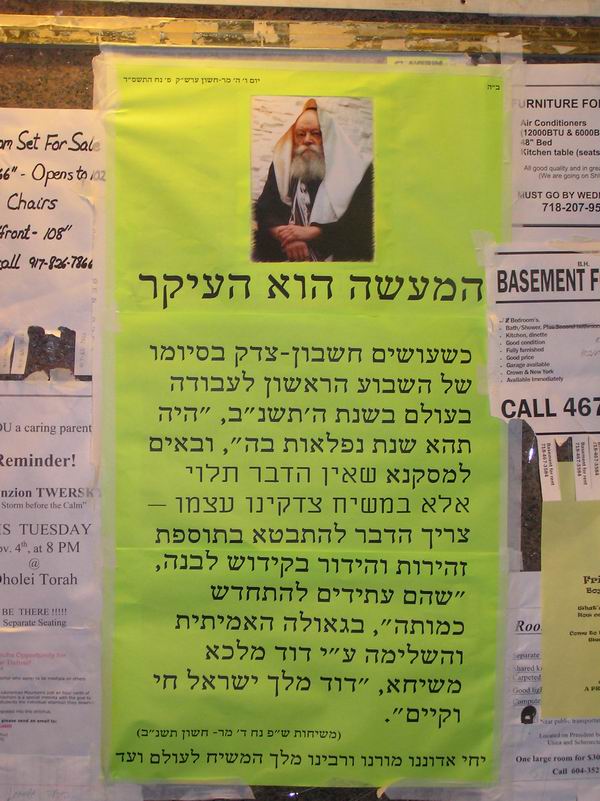 ב"ה
יום ו' ה' מר-חשון ערש"ק פ' נח התשס"ד
המעשה הוא העיקר
כשעושים חשבון-צדק בסיומו
של השבוע הראשון לעבודה
בעולם בשנת ה'תשנ"ב, "היה
תהא שנת נפלאות בה", ובאים
למסקנא שאין הדבר תלוי
אלא במשיח צדקינו עצמו —
צריך הדבר להתבטא בתוספת
זהירות והידור בקידוש לבנה,
"שהם עתידים להתחדש
כמותה", בגאולה האמיתית
והשלימה ע"י דוד מלכא
משיחא, "דוד מלך ישראל חי
וקיים".
(משיחות ש"פ נח ד' מר- חשון תשנ"ב)
יחי אדוננו מורנו ורבינו מלך המשיח לעולם ועד
Set For Sale
66" - Opens to 102
Chairs
front - 108"
call 917-826-7866
OU a caring parent
Reminder!
nzion TWERSKY
Storm before the Calm"
IS TUESDAY
ov. 4th, at 8 PM
@
Oholei Torah
BE THERE !!!!!
Separate Seating
URNITURE FO
Air Conditioners
(12000BTU & 6000B
48" Bed
Kitchen table (seats
All good quality and in gre
(We are going on Shl
MUST GO BY WED
718-207-95
B.H.
BASEMENT F
2 Bedroom's.
Bath/Shower, Plus Second bathroom
Kitchen, dinette
Good condition
Fully furnished
Good price
Garage available
Crown & New York
Available immediately
CALL 467
Basement for rent
718-467-3584
Basement for rent
718-467-3584
Fri
Roo
Separate
Shared k
Carpeted
Good lig
Compute
Near public transportat
Located on President b
Utica and Schenect
One large room for $30
Call 604-352